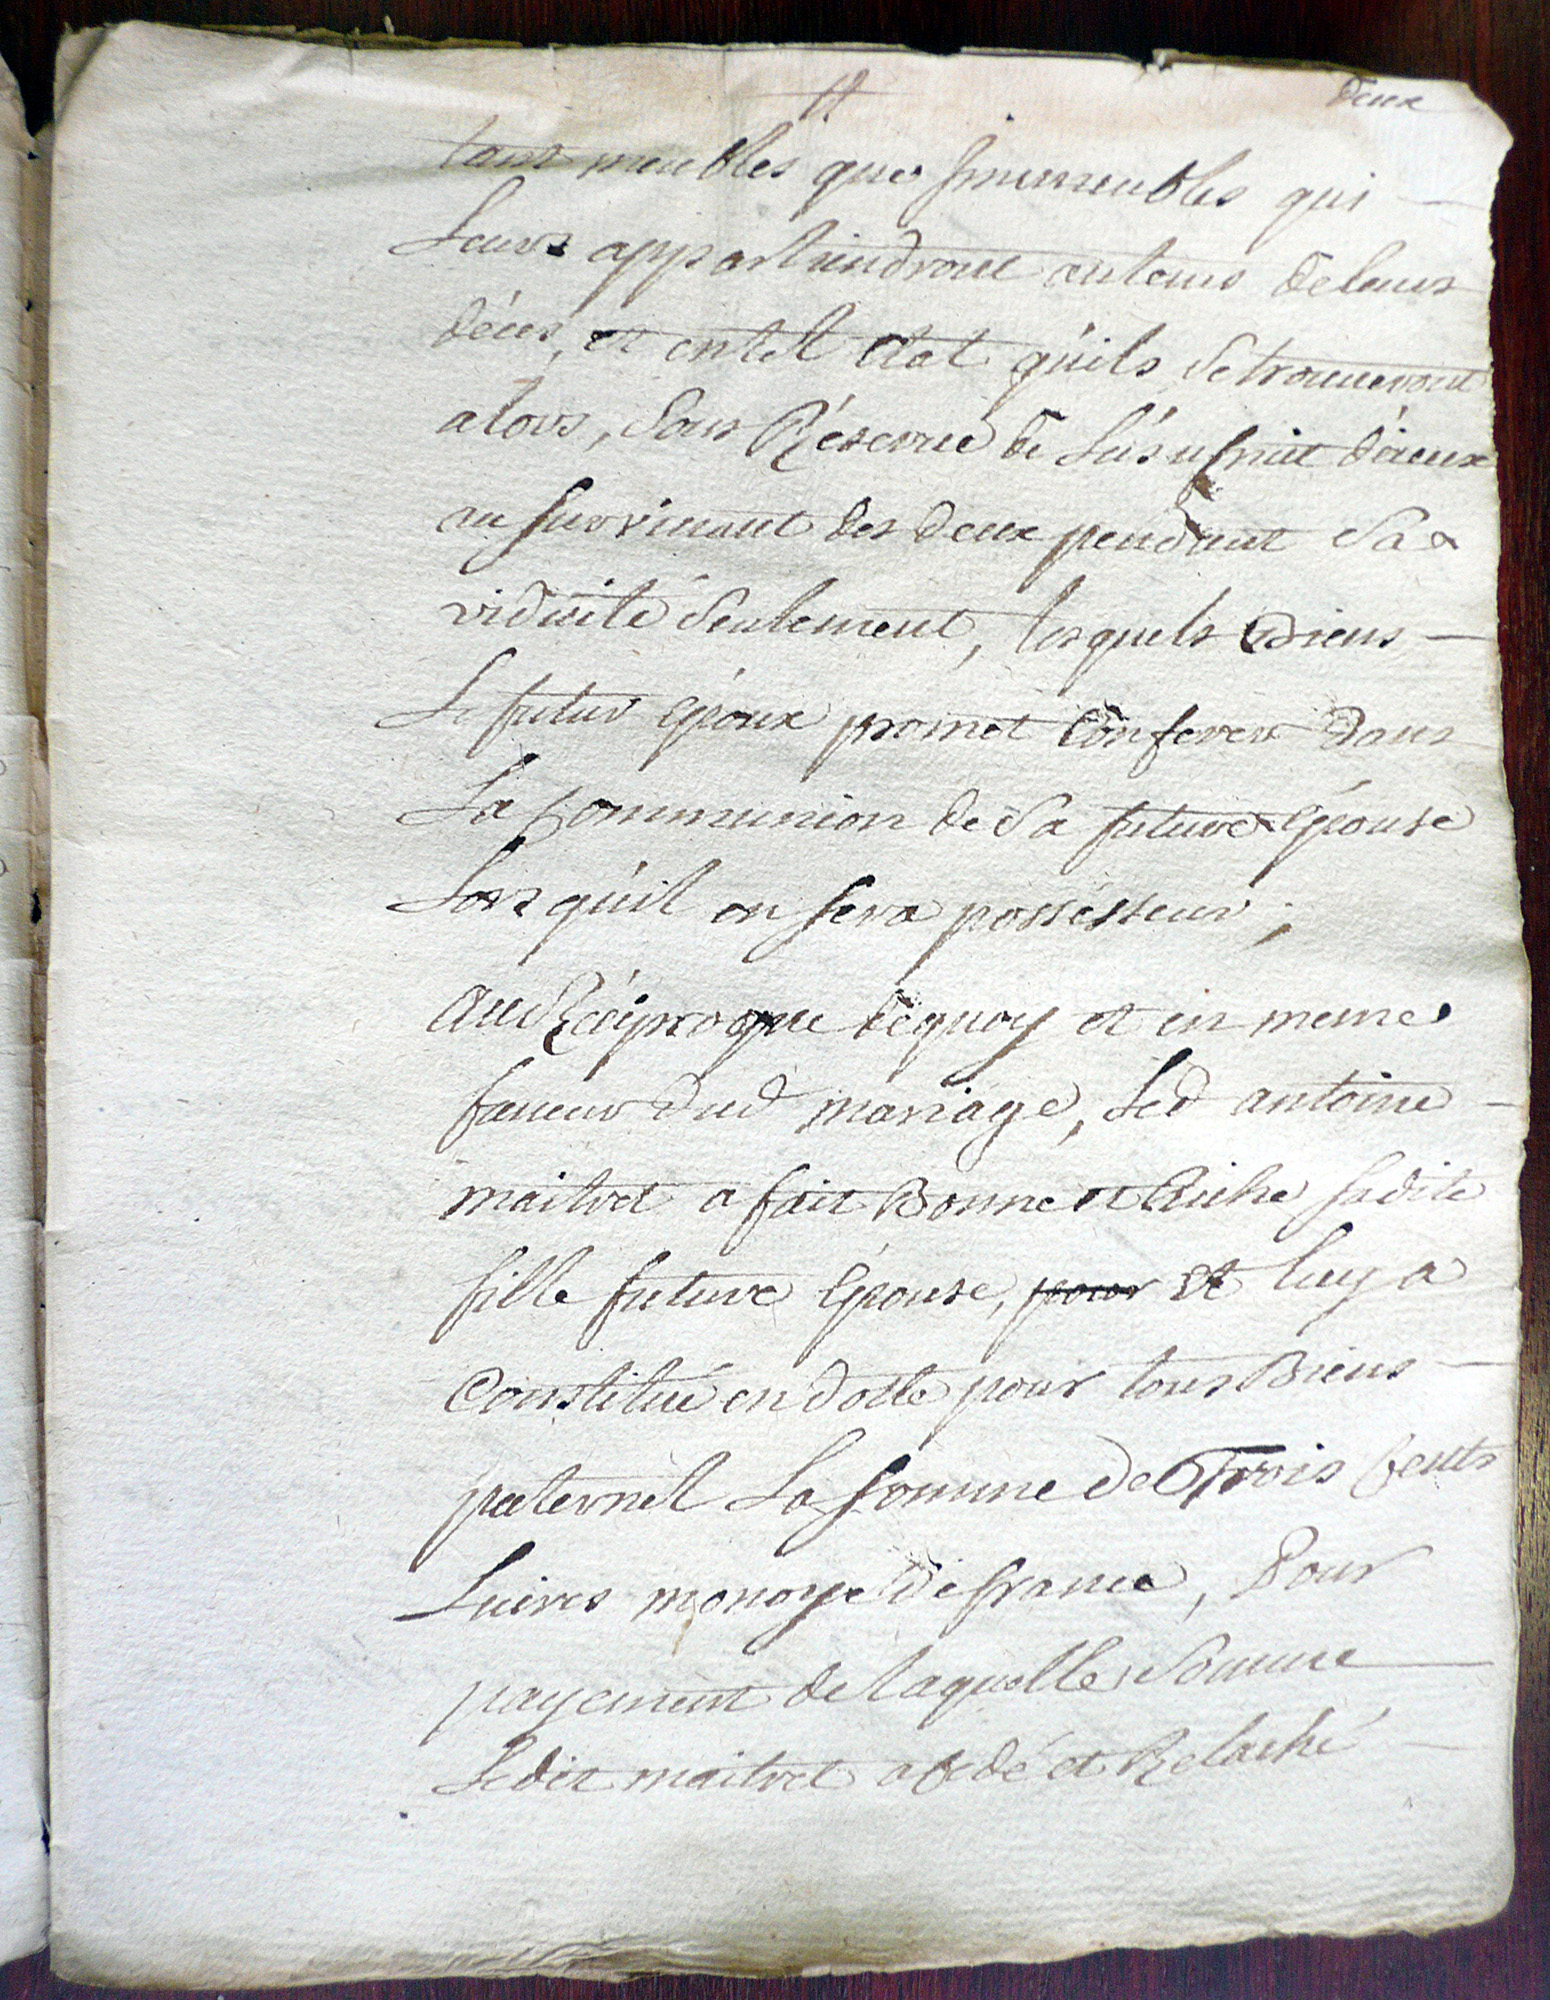 deux
tant meubles que jmmeubles qui
Leurs appartiendront autems de leurs
déces, et en tel état quils se trouueront
alors, sous Réserue de Lúsufruit d'iceux
au suruiuant des deux pendant sa
viduité seulement, lesquels Biens
Le futur Epoux promet Conferer dans
La Communion de sa future Epouse
Lors quil en sera possésseur;
Au Réciproque dequoy et en meme
faueur dud mariage, Led antoine
maitret a fait Bonne et Riche sadite
fille future Epouse, pour et luy a
Constitué en dotte pour tous Biens
paternel La somme de Trois Cents
Liures monoye de france, Pour
payement de laquelle somme
Ledit maitret a Cedé et Relaché